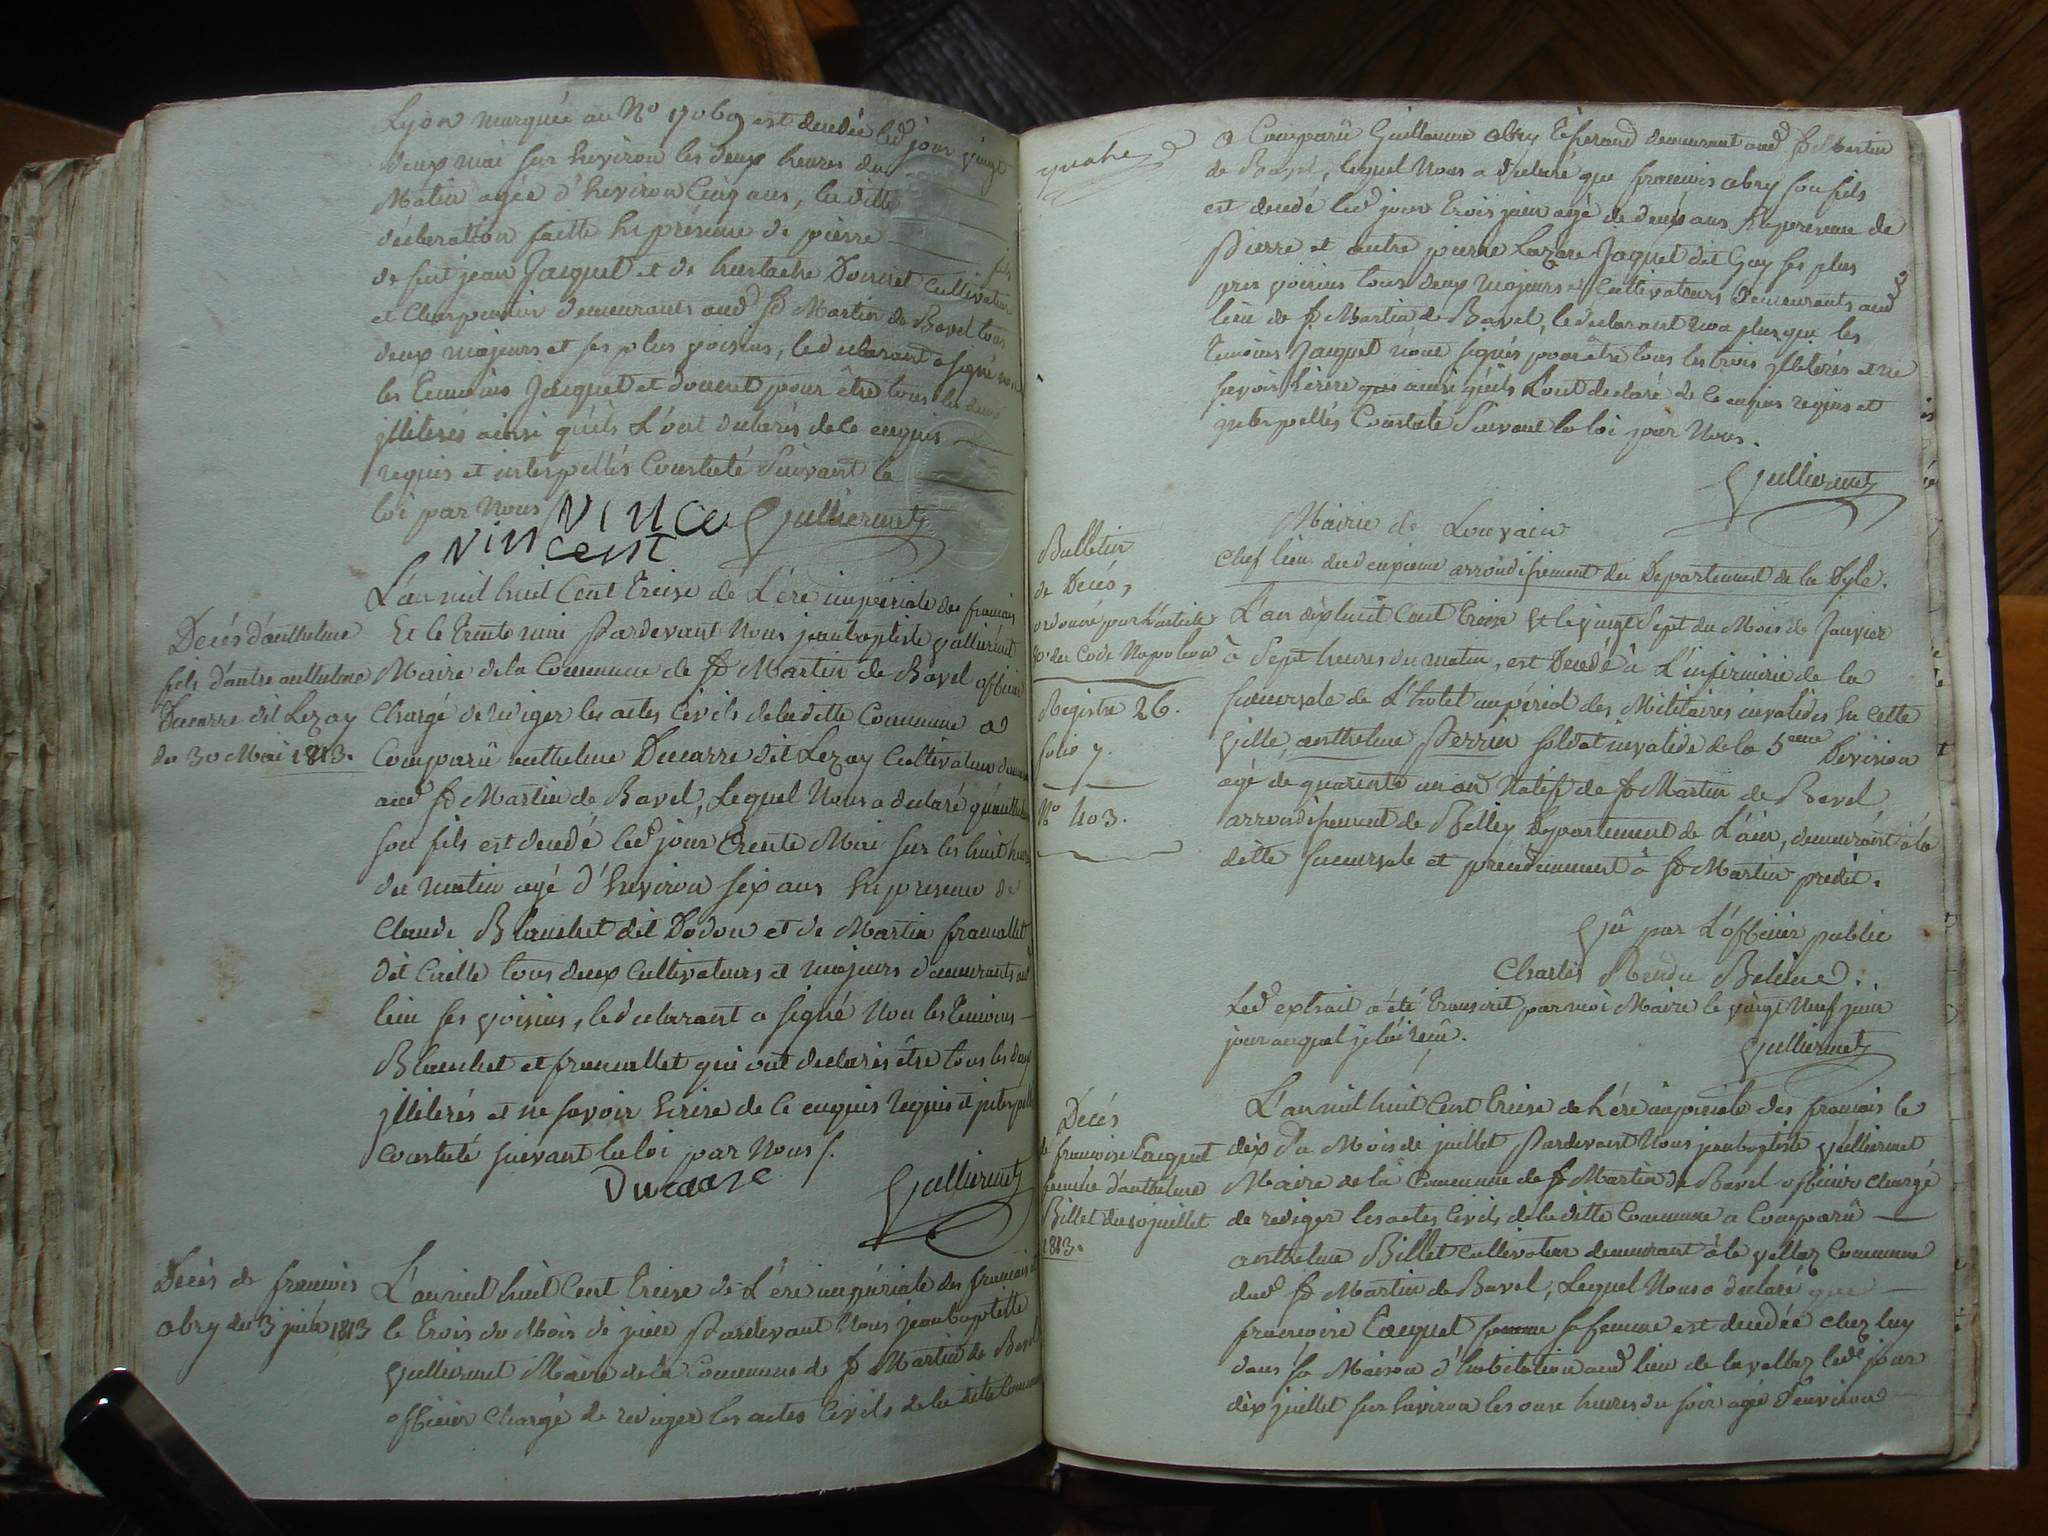 Lyon marquée au No 17069 est decedée led jour vingt
deux mai sur heviron les deux heures du
Matin agée d'heviron Cinq ans, laditte
déclaration faitte En présence de pierre
de feu jean Jacquet et de Eustache Doucet Cultivateur
et Charpentier demeurants aud St Martin de Bavel tous
deux majeurs et ses plus voisins, le declarant a signé non
les Temoins Jacquet et doucet pour être tous les deux
jlleterés ainsi qu'ils L'ont declarés de ce enquis
requis et interpellés Constaté Suivant la
loi par Nous
vincent vince Gulliermet
Decés d'anthelme
fils d'autre anthelme
Ducarre dit Lezay
du 30 Mai 1813.
L'an mil huit Cent Treize de L'ére impériale des francais
Et le Trente mai Pardevant Nous jeanbaptiste gulliermet
Maire de la Commune de St Martin de Bavel officier
Chargé de rediger les actes Civils de laditte Commune a
Comparu anthelme Ducarre dit Lezay Cultivateur
aud St Martin de Bavel, Lequel Nous a declaré
son fils est decedé led jour Trente Mai sur les huit heures
du matin agé d'heviron six ans En presence de
Claude Blanchet dit Dodon et de Martin francallet
dit Cirille tous deux Cultivateurs et majeurs demeurants
lieu ses voisins, le declarant a signé Non les Temoins
Blanchet et francallet qui ont declarés être tous les deux
jlleterés et ne savoir Ecrire de ce enquis Requis et
Constaté suivant la loi par Nous /.
Ducarre Gulliermet
Decés de francois
abry du 3 juin 1813
L'an mil huit Cent Treize de L'ére impériale des francais
le Trois du Mois de juin Pardevant Nous jeanbaptiste
gulliermet Maire de la Commune de St Martin de Bavel
officier Chargé de rediger les actes Civils de la ditte Commune
quatre
a Comparû Guillaume abry demeurant aud St Martin
de Bavel, lequel Nous a declaré que francois abry son fils
est decedé led jour trois juin agé de deux ans En presence de
Pierre et autre pierre Lazare Jaquet dit Gay ses plus
pres voisins tous deux majeurs et Cultivateurs Demeurants aud
lieu de St Martin de Bavel, le declarant non plus que les
Temoins Jacquet n'ont signés pour être tous les trois jlleterés et ne
savoir Ecrire ainsi qu'ils L'ont declaré de ce enquis requis et
jnterpellés Constaté Suivant la loi par Nous.
Gulliermet
Mairie de Louvain
Chef lieu du deuxieme arrondissement du Departement de la Dyle.
Bulletin
de Décés,
ordonné par L'article
80. du Code Napoleon
Registre 26.
folio 7.
No 403.
L'an dix huit Cent Treize Et le vingt Sept du Mois de Janvier
à Sept heures du matin, est Decedé à L'infirmirie de la
succursale de L'hotel impérial des Militaires invalides En cette
Ville, anthelme Perrin soldat invalide de la 5eme Division
agé de quarante un an Natif de St Martin de Bavel
arrondissement de Belley Departement de L'ain, demeurant à la
ditte succursale et précédemment à St Martin predit.
Vû par L'officier public
Charles
Led extrait a été Transcrit par moi Maire le vingt Neuf juin
jour auquel je l'ai reçu.
Gulliermet
Decés
de francoise Tacquet
femme d'anthelme
Billet du 10 juillet
1813.
L'an mil huit Cent Treize de L'ére impériale des francais le
dix du Mois de juillet Pardevant Nous jeanbaptiste gulliermet
Maire de la Commune de St Martin de Bavel officier Chargé
de rediger les actes Civils de laditte Commune a Comparû
anthelme Billet Cultivateur demeurant à la vellaz Commune
dud St Martin de Bavel, Lequel Nous a declaré que
francoise Tacquet sa femme est decedée chez luy
dans sa Maison d'habitation aud lieu de la vellaz led jour
dix juillet sur heviron les onze heures du soir agée d'environ